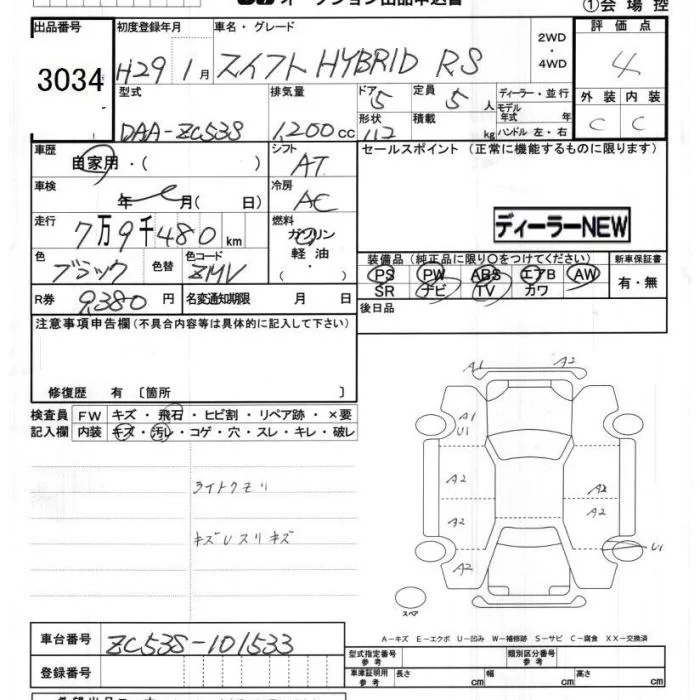 オークション出品申込書
①会場控
出品番号 3034
初度登録年月 H29 1月
車名・グレード スイフト HYBRID RS
2WD・4WD
評価点 4
外装 C 内装 C
型式 DAA-ZC53S
排気量 1,200cc
ドア 5 形状 112
定員 5人 積載 kg
ディーラー・並行
モデル年式 年
ハンドル 左・右
車歴 自家用・( )
シフト AT
セールスポイント (正常に機能するものに限ります)
車検 年 月( 日)
冷房 AC
走行 7万9千480km
燃料 ガソリン 軽油・( ・ )
ディーラーNEW
色 ブラック 色替
色コード ZMV
装備品 (純正品に限り○をつけてください)
新車保証書 有・無
PS PW ABS エアB AW
SR ナビ TV カワ
R券 9,380円 名変通知期限 月 日
後日品
注意事項申告欄 (不具合内容等は具体的に記入して下さい)
修復歴 有 〔箇所 〕
検査員記入欄
FW キズ・飛石・ヒビ割・リペア跡・×要
内装 キズ・汚レ・コゲ・穴・スレ・キレ・破レ
ライトクモリ
キズUスリキズ
A1 A2
A1
U1
A2 A2
A2 A2
U1
A2
スペア
A-キズ E-エクボ U-凹み W-補修跡 S-サビ C-腐食 XX-交換済
車台番号 ZC53S-101533
型式指定番号 参考 類別区分番号 参考
登録番号
車庫証明用 参考 長さ cm 幅 cm 高さ cm